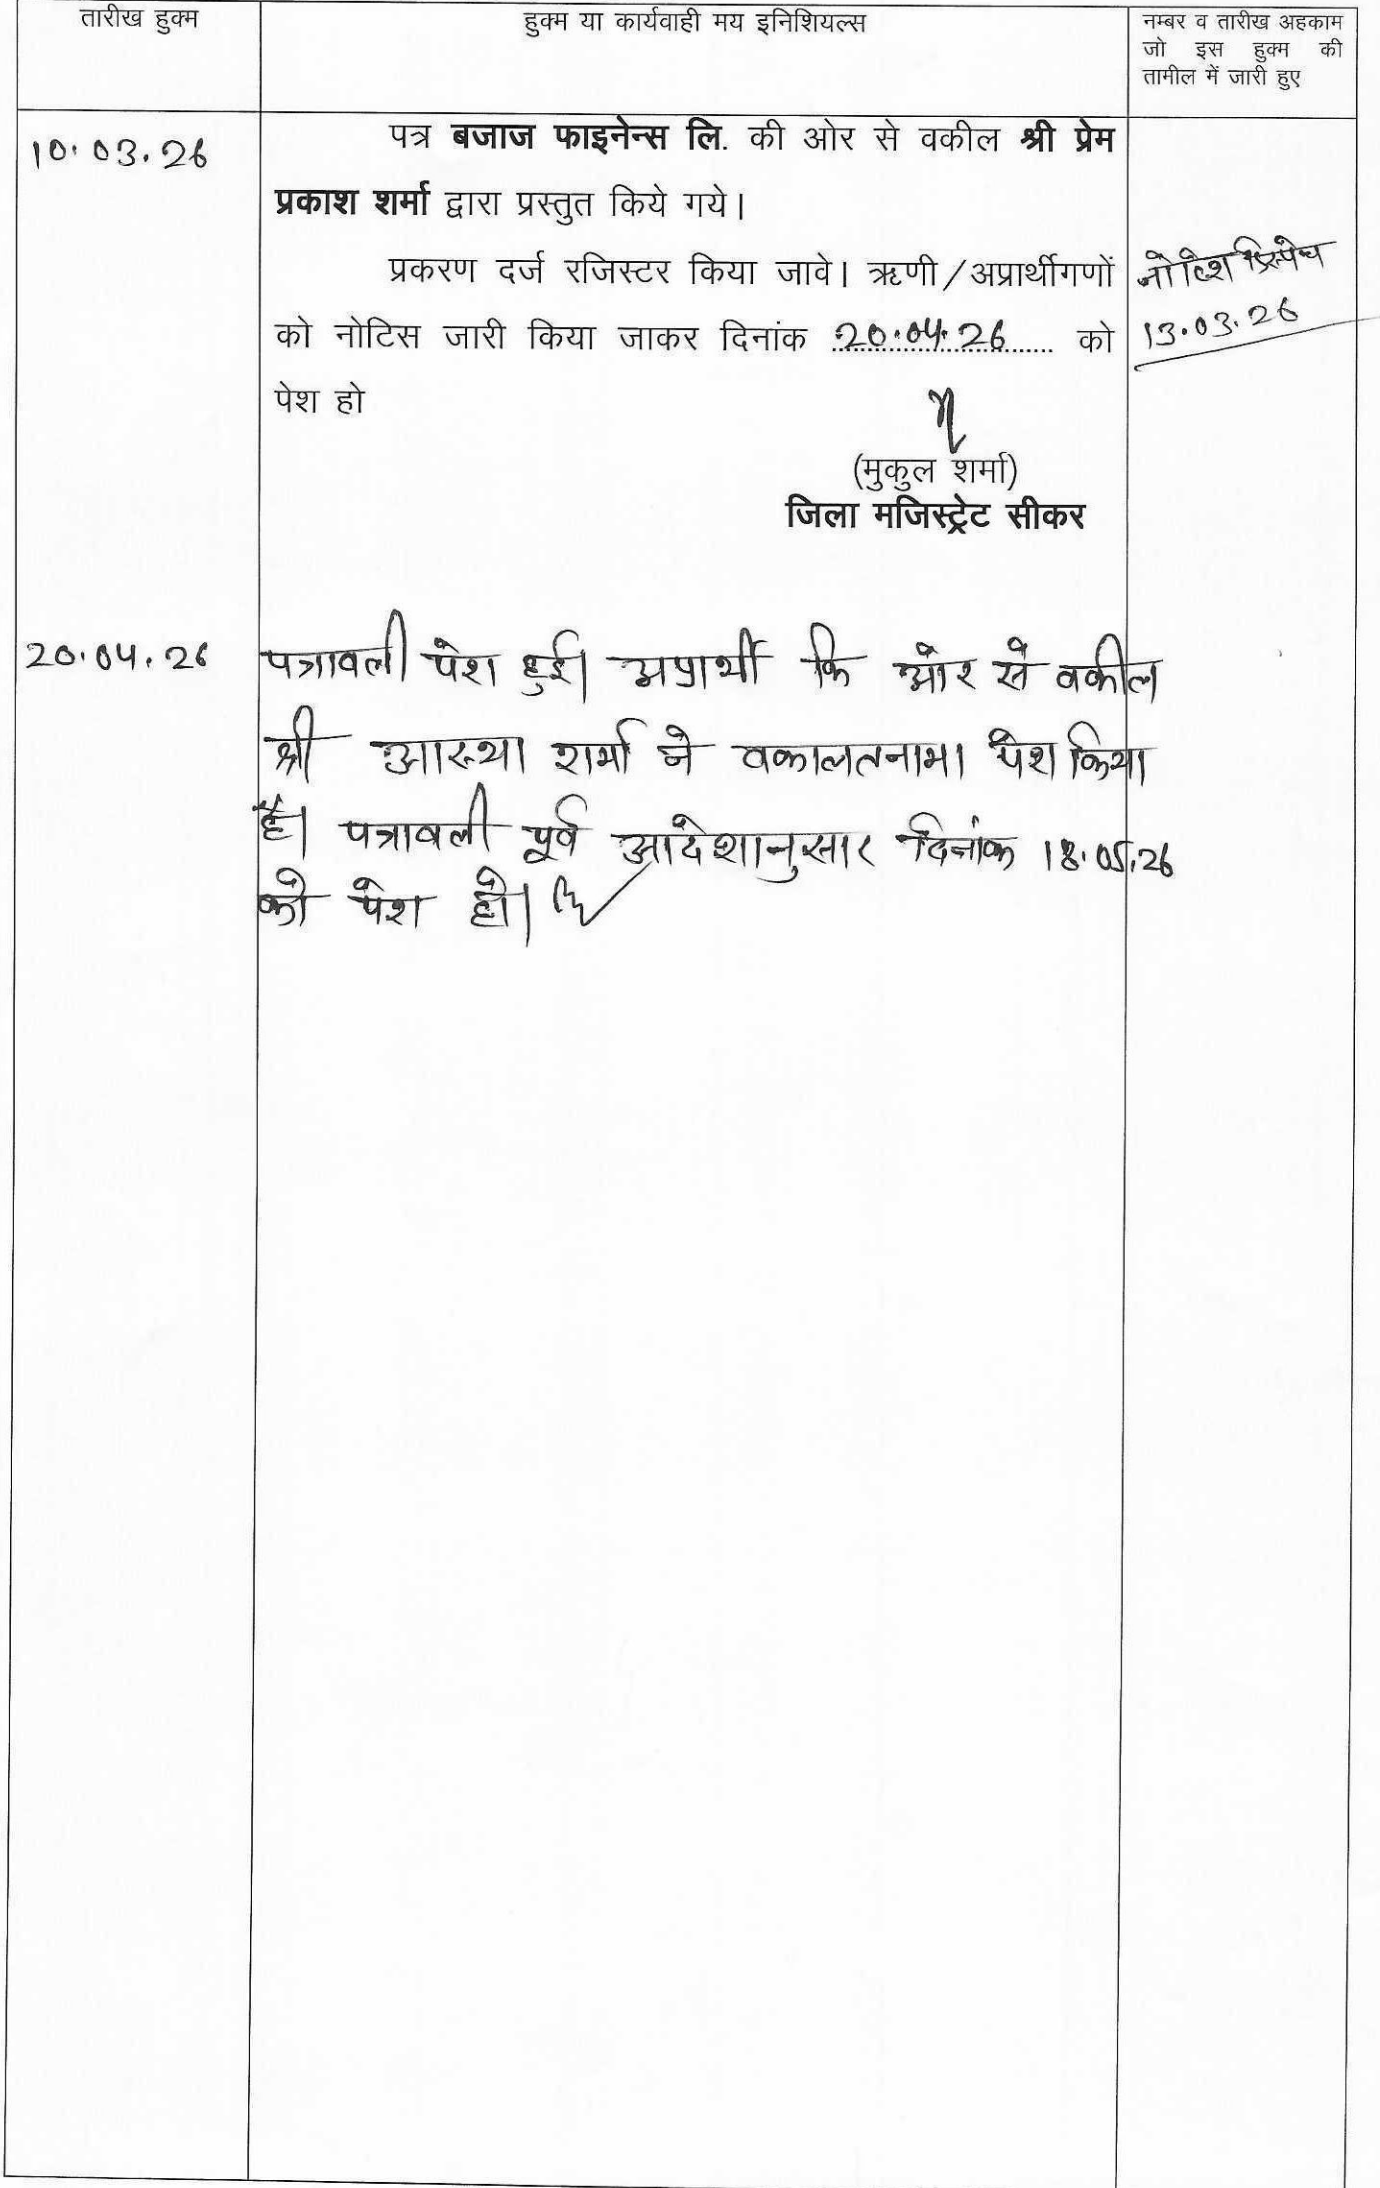 तारीख हुक्म
हुक्म या कार्यवाही मय इनिशियल्स
नम्बर व तारीख अहकाम
जो इस हुक्म की
तामील में जारी हुए
10.03.26
पत्र बजाज फाइनेन्स लि. की ओर से वकील श्री प्रेम
प्रकाश शर्मा द्वारा प्रस्तुत किये गये।
प्रकरण दर्ज रजिस्टर किया जावे। ऋणी/अप्रार्थीगणों
को नोटिस जारी किया जाकर दिनांक 20.04.26 को
पेश हो
नोटिश
13.03.26
(मुकुल शर्मा)
जिला मजिस्ट्रेट सीकर
20.04.26
पत्रावली पेश हुई। अप्रार्थी कि ओर से वकील
श्री आस्था शर्मा ने वकालतनामा पेश किया
है। पत्रावली पूर्व आदेशानुसार दिनांक 18.05.26
को पेश हो।